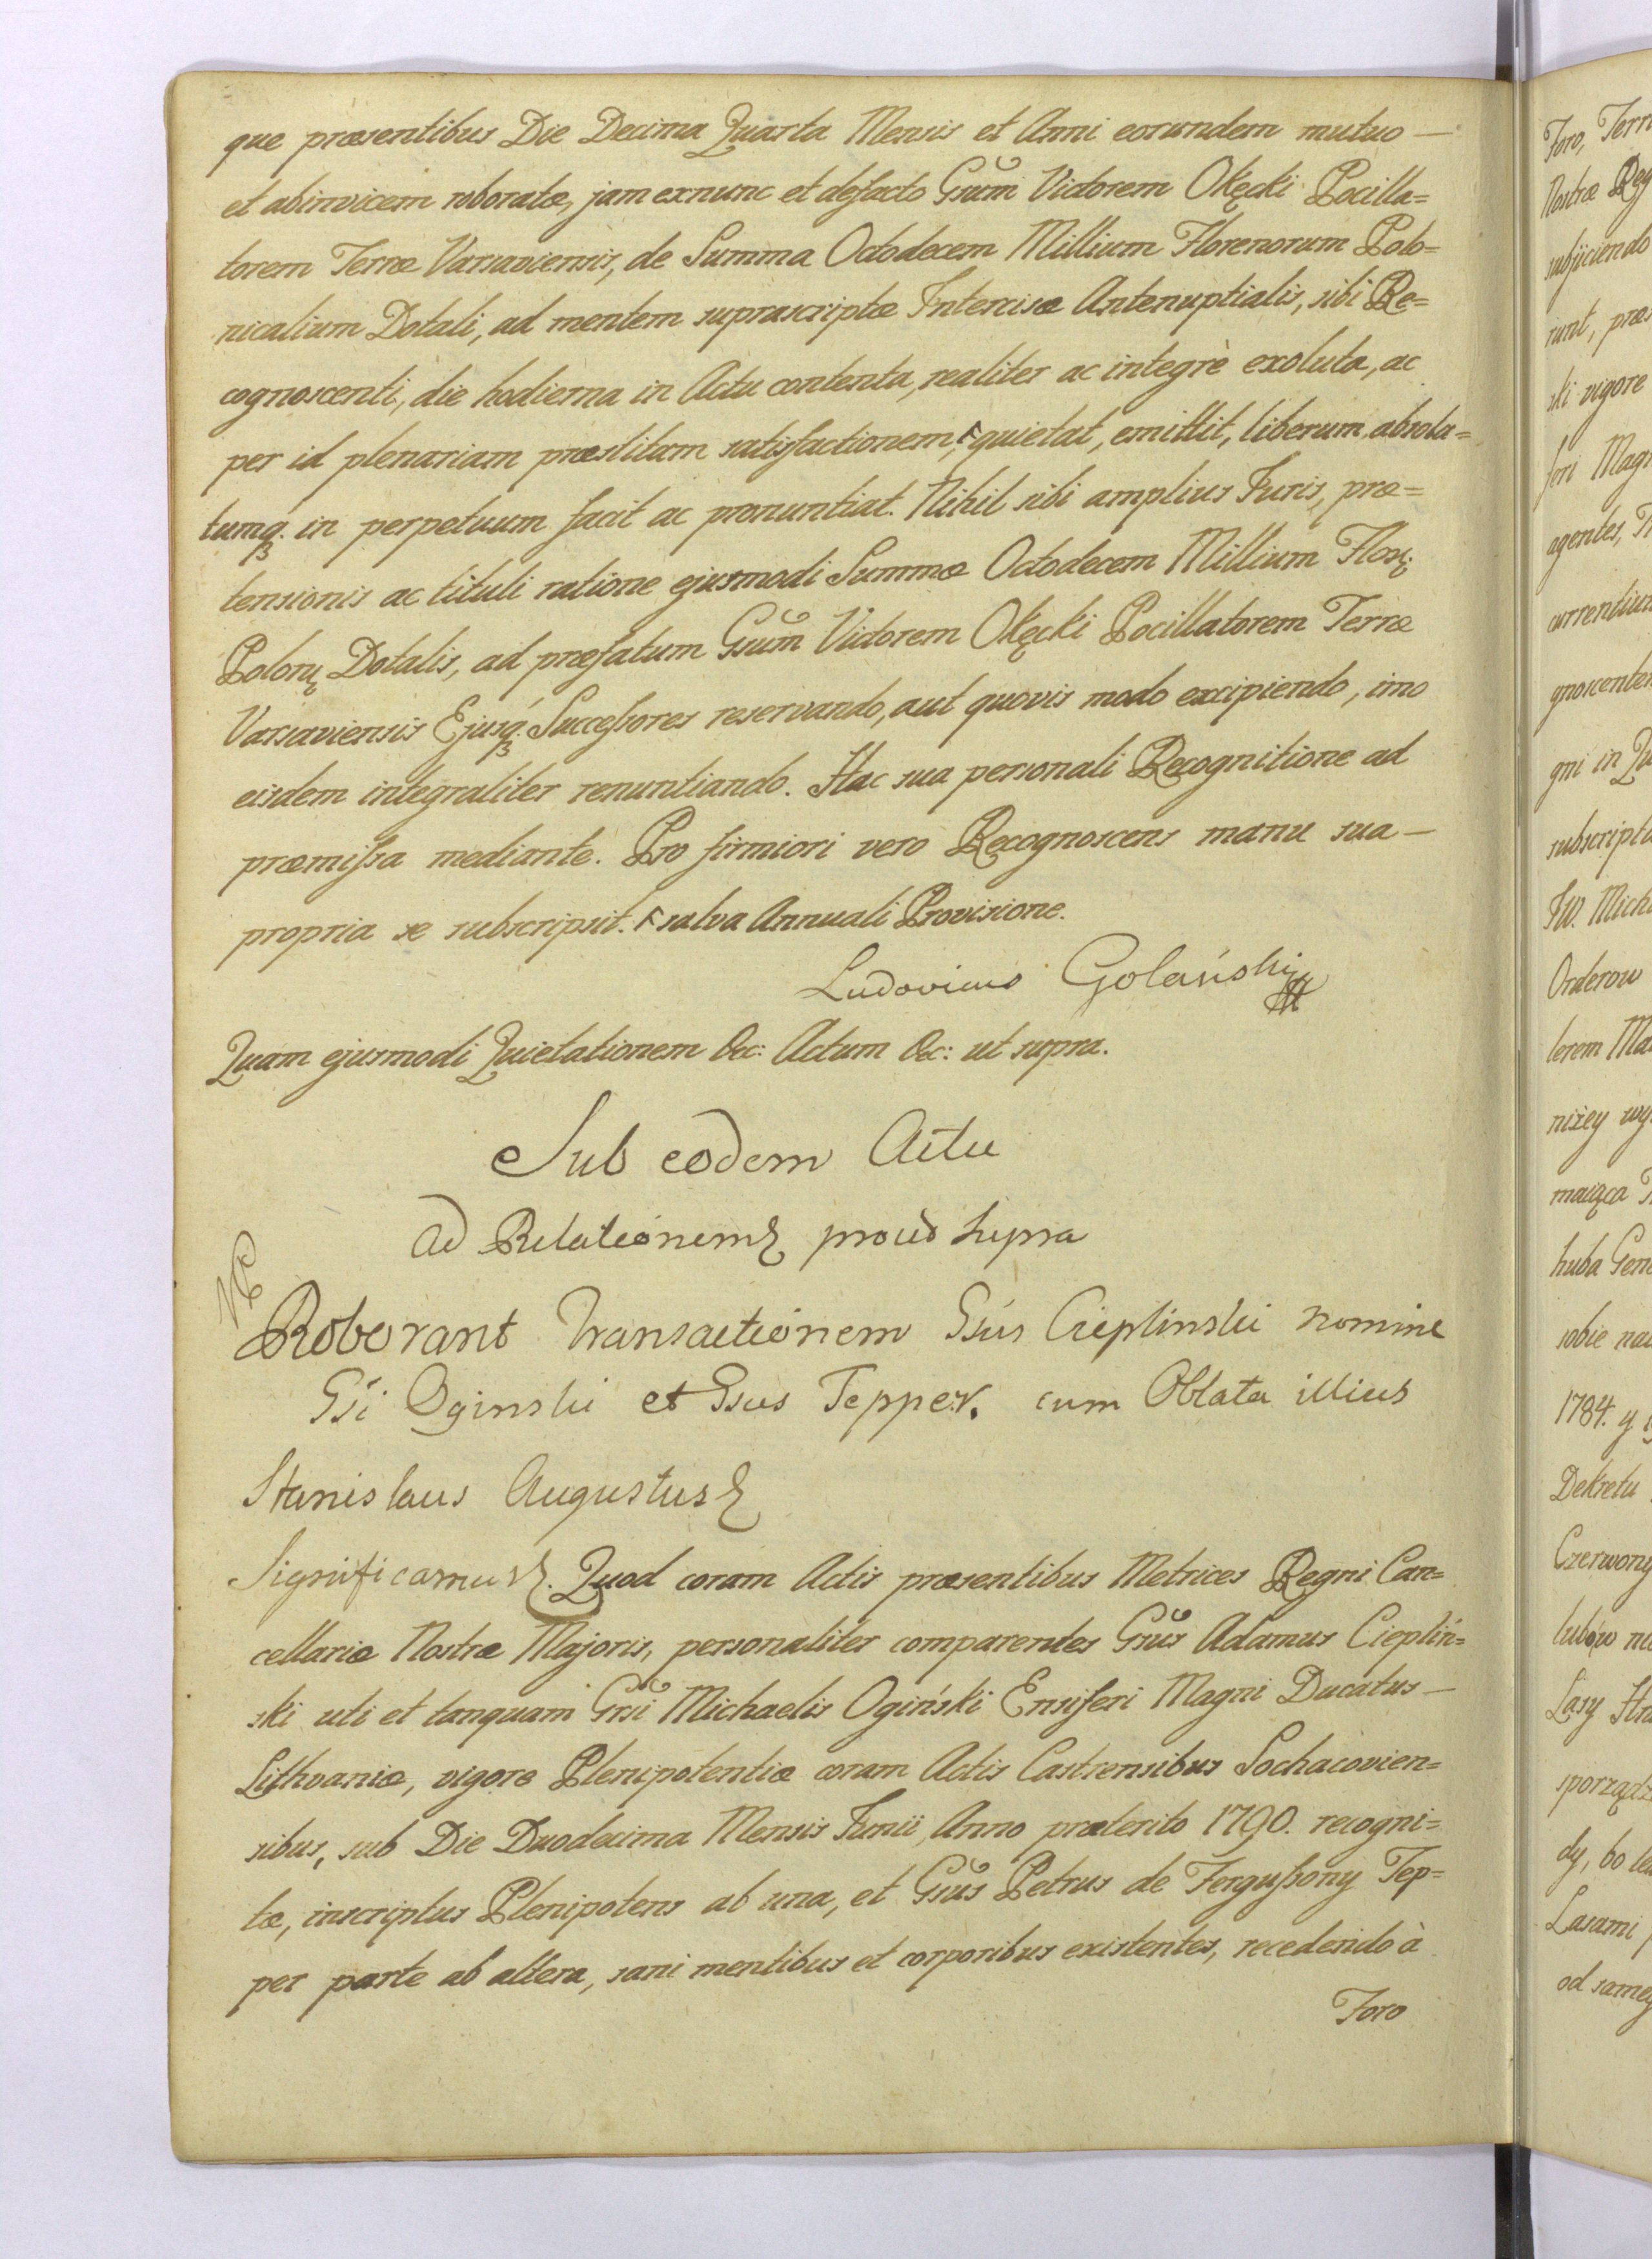 que præsentibus Die Decima Quarta Mensis et Anni eorundem mutuo —
et abinvicem roboratæ, jam exnunc et defacto Gsum Victorem Okęcki Pocilla=
torem Terræ Varsaviensis, de Summa Octodecem Millium Florenorum Polo=
nicalium Dotali, ad mentem suprascriptæ Intercisæ Antenuptialis, sibi Re=
cognoscenti, die hodierna in Actu contenta, realiter ac integrè exoluta, ac
per id plenariam præstitam satisfactionem, quietat, emittit, liberum absolu=
tumq. in perpetuum facit ac pronuntiat. Nihil sibi amplius Juris, præ=
tensionis ac tituli ratione ejusmodi Summæ Octodecem Millium Flor.
Polon. Dotalis, ad præfatum Gsum Victorem Okęcki Pocillatorem Terræ
Varsaviensis Ejusq. Successores reservando, aut quovis modo excipiendo, imo
eisdem integraliter renuntiando. Hac sua personali Recognitione ad
præmissa mediante. Pro firmiori vero Recognoscens manu sua —
propria se subscripsit. salva Annuali Provisione.
Ludovicus Golański
Quam ejusmodi Quietationem &c: Actum &c: ut supra.
Sub eodem Actu
Ad Relationem prout supra
Roborant Transactionem Gsus Cieplinski nomine
Gsi Oginski et Gsus Tepper. cum Oblata illius
Stanislaus Augustus
Significamus. Quod coram Actis præsentibus Metrices Regni Can=
cellariæ Nostræ Majoris, personaliter comparentes Gsus Adamus Ciepliń=
ski uti et tanquam Gsi Michaelis Ogiński Ensiferi Magni Ducatus —
Lithvaniæ, vigore Plenipotentiæ coram Actis Castrensibus Sochacovien=
sibus, sub Die Duodecima Mensis Junii Anno præterito 1790. recogni=
tæ, inscriptus Plenipotens ab una, et Gsus Petrus de Fergussony Tep=
per parte ab altera, sani mentibus et corporibus existentes, recedendo à
Foro
Foro,
Nostræ
subjiciendo
runt,
ski vigore
agentes,
gni in
JW.
Orderow
niżey
maiąca
huba
sobie
1784. y
Dekretu
Lasy
dy, bo
Lasami
od samey